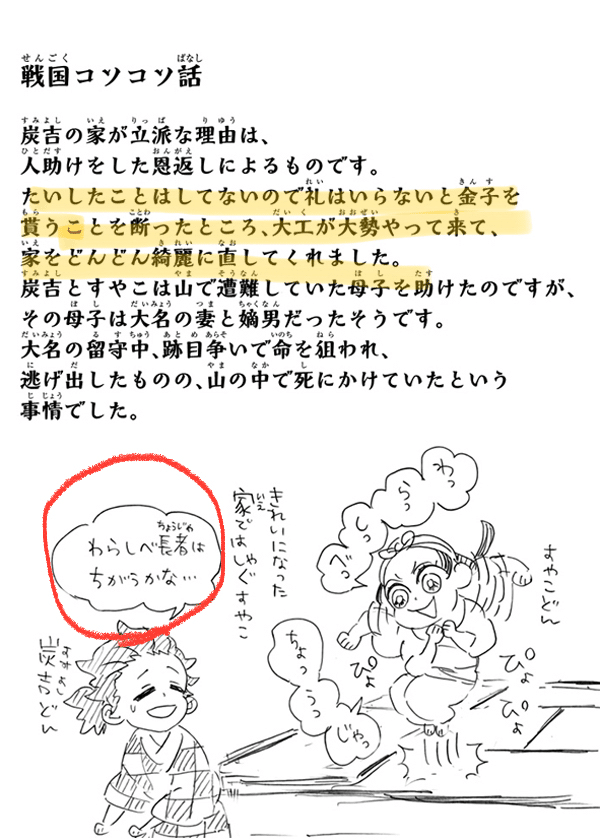 戦国コソコソ話
炭吉の家が立派な理由は、
人助けをした恩返しによるものです。
たいしたことはしてないので礼はいらないと金子を
貰うことを断ったところ、大工が大勢やって来て、
家をどんどん綺麗に直してくれました。
炭吉とすやこは山で遭難していた母子を助けたのですが、
その母子は大名の妻と嫡男だったそうです。
大名の留守中、跡目争いで命を狙われ、
逃げ出したものの、山の中で死にかけていたという
事情でした。
すやこどん
わっ
らっ
べっ
ちょっ
うっ
じゃっ
ぴょ
ぴょ
ぴょ
ぴょ
きれいになった
家ではしゃぐすやこ
わらしべ長者は
ちがうかな…
炭吉どん